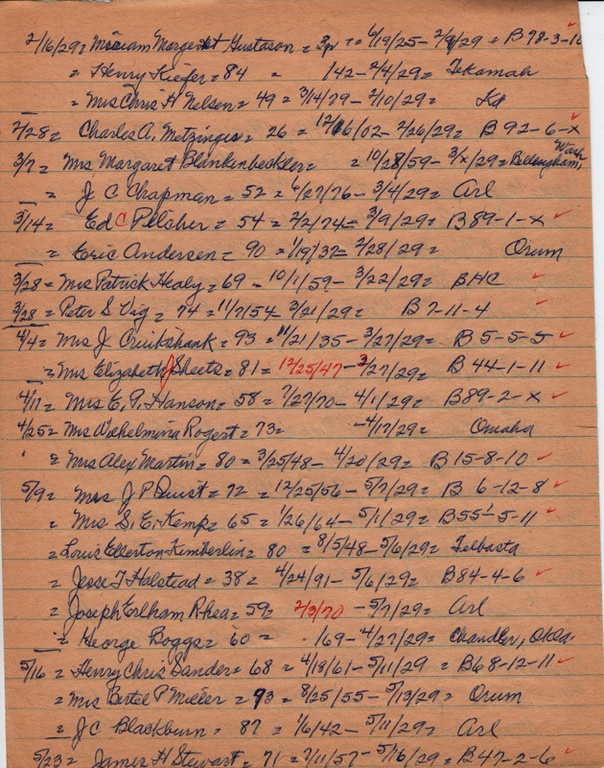 2/16/29 = Miriam Margeret Gustason = 3 yr + = 6/19/25 - 2/9/29 = B 98-3-10
= Henry Kiefer = 84 = 142 - 2/4/29 = Tekamah
= Mrs Chris H Nelsen = 49 = 3/14/79 - 2/10/29 = Kd
2/28 = Charles A. Metzinger = 26 = 12/16/02 - 2/26/29 = B 92-6-X
3/7 = Mrs Margaret Blankenbeckler = = 10/28/59 - 3/X/29 = Bellingham, Wash
= J C Chapman = 52 = 6/27/76 - 3/4/29 = Arl
3/14 = Ed C Pilcher = 54 = 2/2/74 - 3/9/29 = B 89-1-X
= Eric Andersen = 90 = 1/19/37 - 2/28/29 = Orum
3/28 = Mrs Patrick Healy = 69 = 10/1/59 - 3/22/29 = BHC
3/28 = Peter S Vig = 74 = 11/7/54 - 3/21/29 = B 7-11-4
4/4 = Mrs J. Cruikshank = 93 = 11/21/35 - 3/27/29 = B 5-5-5
= Mrs Elizabeth J Sheets = 81 = 12/25/47 - 3/27/29 = B 44-1-11
4/17 = Mrs E. P. Hanson = 58 = 7/27/70 - 4/1/29 = B 89-2-X
4/25 = Mrs Wilhelmina Rogert = 73 = - 4/17/29 = Omaha
= Mrs Alex Martin = 80 = 3/25/48 - 4/20/29 = B 15-8-10
5/9 = Mrs J P Quist = 72 = 12/25/56 - 5/7/29 = B 6-12-8
= Mrs S. E. Kemp = 65 = 1/26/64 - 5/1/29 = B 55-5-11
= Louis Ellerton Kimberlin = 80 = 8/5/48 - 5/6/29 = Telbasta
= Jesse T Halstead = 38 = 4/24/91 - 5/6/29 = B 84-4-6
= Joseph Erlham Rhea = 59 = 2/3/70 - 5/7/29 = Arl
= George Boggs = 60 = 169 - 4/27/29 = Chandler, Okla
5/16 = Henry Chris Sander = 68 = 4/18/61 - 5/11/29 = B 68-12-11
= Mrs Bertel P Miller = 93 = 8/25/55 - 5/13/29 = Orum
= J C Blackburn = 87 = 1/6/42 - 5/11/29 = Arl
5/23 = James H Stewart = 71 = 7/11/57 - 5/16/29 = B 47-2-6